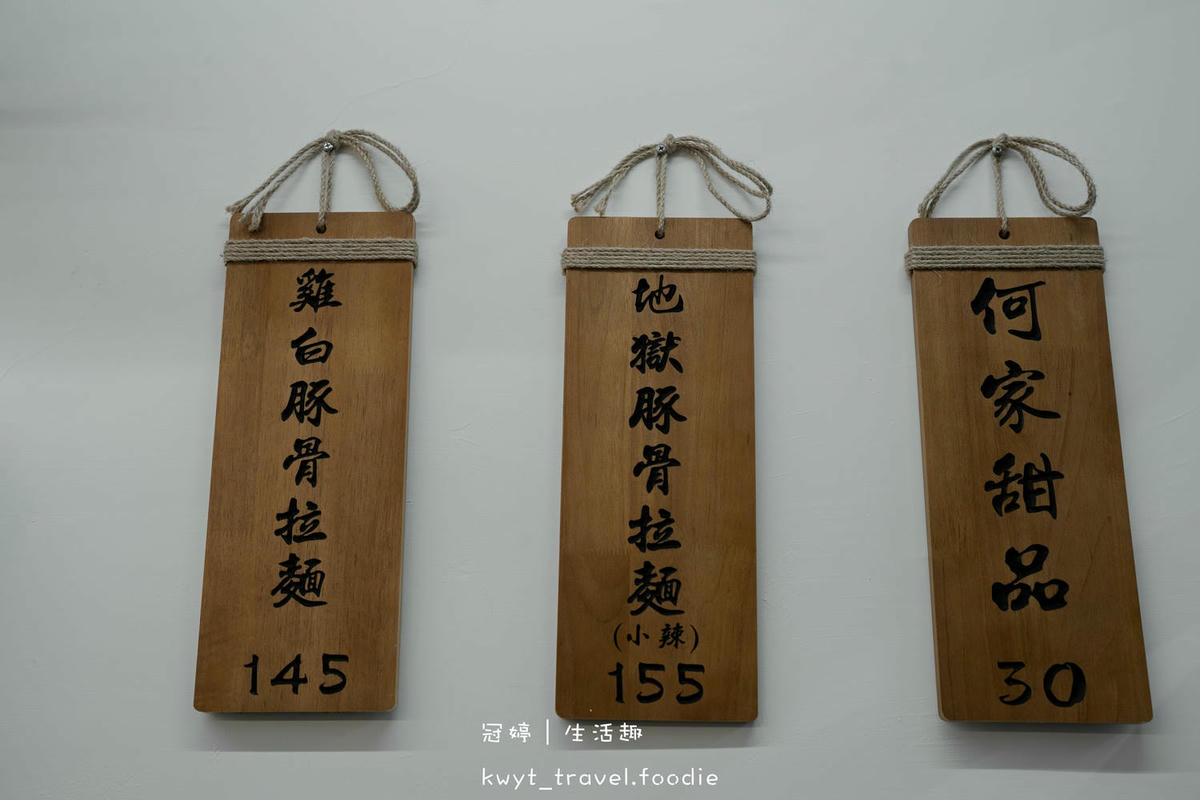 雞白豚骨拉麵
145
地獄豚骨拉麵
(小辣)
155
何家甜品
30
冠婷｜生活趣
kwyt_travel.foodie